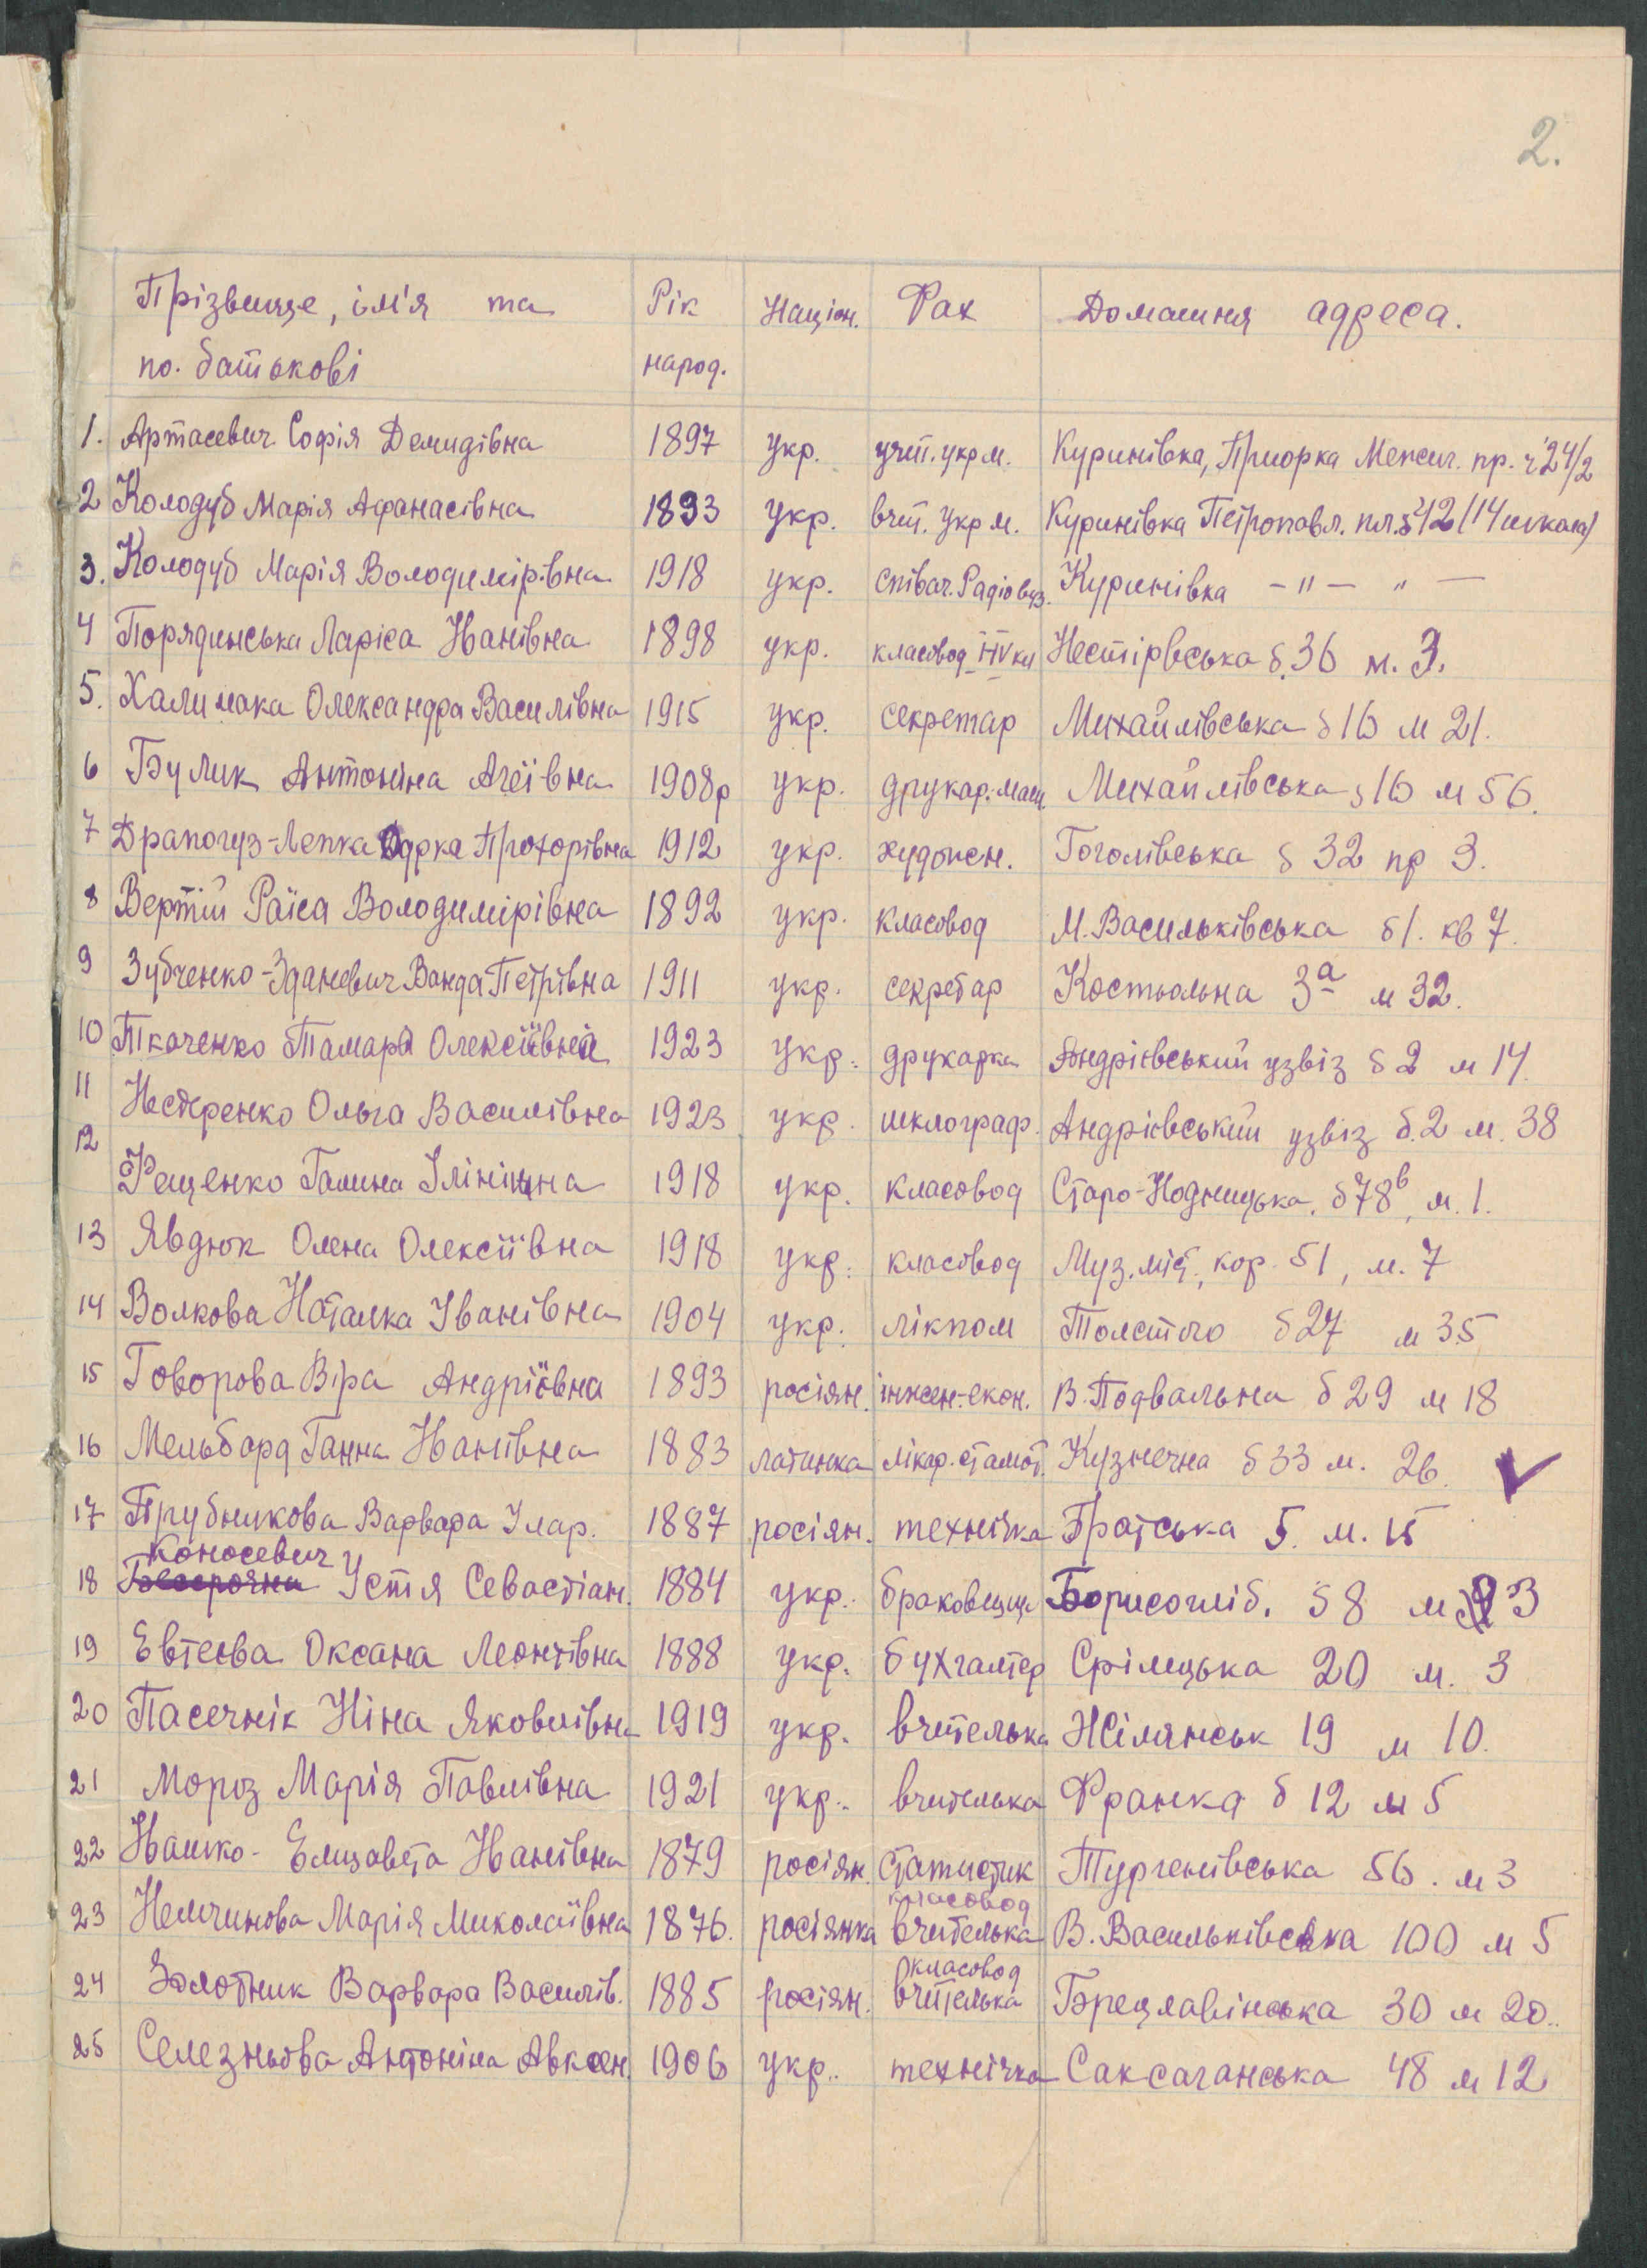 2.
Прізвище, ім'я та по. батькові Рік народ. Націон. Фах Домашня адреса.
1. Артасевич Софія Демидівна 1897 укр. учит. укр м. Куринівка, Приорка Межиг. пр. ч 24/2
2 Колодуб Марія Афанасівна 1893 укр. вчит. укр м. Куринівка Петропавл. пл. б 12 (14 школа)
3. Колодуб Марія Володимірівна 1918 укр. співач. Радіовуз. Куринівка — " — " —
4 Порядинська Ларіса Іванівна 1898 укр. класовод кл Нестірівська б. 36 м. 3.
5. Халимака Олександра Василівна 1915 укр. секретар Михайлівська б 16 м 21.
6 Булик Антоніна Агеївна 1908р укр. друкар. маш Михайлівська б 16 м 56.
7 Драпогуз-Лепка Одрка Прохорівна 1912 укр. художн. Гоголівська б 32 пр 3.
8 Вертій Раїса Володимірівна 1892 укр. класовод М. Васильківська б 1. кв 7.
9 Зубченко-Зданевич Ванда Петрівна 1911 укр. секретар Костьольна 3а м 32.
10 Ткаченко Тамара Олексіївна 1923 укр. друкарка Андріївський узвіз б 2 м 14.
11 Нестеренко Ольга Василівна 1923 укр. шклограф. Андрієвський узвіз б. 2 м. 38
12 Фещенко Галина Ілінішна 1918 укр. класовод Старо-Водницька, б 78в, м. 1.
13 Явдюк Олена Олексіївна 1918 укр. класовод Муз. міст., кор. б 1, м. 7
14 Волкова Наталка Іванівна 1904 укр. лікпом Толстого б 27 м 35
15 Говорова Віра Андріївна 1893 росіян. інжен.-екон. В. Подвальна б 29 м 18
16 Мельбард Ганна Іванівна 1883 латишка лікар. стамот. Кузнечна б 33 м. 26. ✓
17 Трубникова Варвара Ілар. 1887 росіян. технічка Братська 5. м. 15
Коносевич
18 Устя Севастіан. 1884 укр. браковщиц Борисогліб. б 8 м 3
19 Евтеєва Оксана Леонтівна 1888 укр. бухгалтер Срілецька 20 м. 3
20 Пасечнік Ніна Яковлівна 1919 укр. вчителька Жілянськ 19 м 10.
21 Мороз Марія Павлівна 1921 укр. вчителька Франка б 12 м 5
22 Івашко- Елизавета Іванівна 1879 росіян. статистик Тургенівська 56. м 3
класовод
23 Немчинова Марія Миколаївна 1876. росіянка вчителька В. Васильківська 100 м 5
класовод
24 Золотник Варвара Василів. 1885 росіян. вчителька Брецлавінська 30 м 20.
25 Селезньова Антоніна Авксен. 1906 укр. технічка Саксаганська 48 м 12